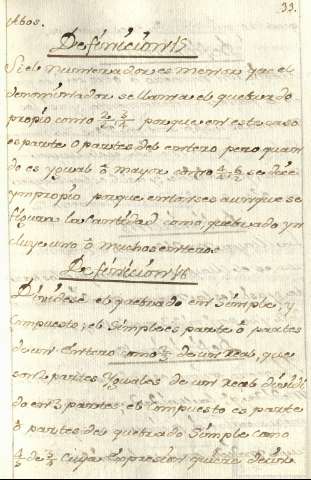 33.
Abos.
Definicion 15
Si el numerador es menor que el
denominador se llama el quebrado
propio como 2/3 3/4 porque en este caso
es parte o partes del entero pero quan
do es ygual ô mayor como 4/4 6/5 se dice
ympropio porque entonses aunque se
figura la Cantidad como quebrado yn
cluye uno ô muchos enteros
Definicion 16
Dividese el quebrado en Simple, y
Compuesto; el Simple es parte ô partes
de un Entero como 2/3 de un Real, que
son 2 partes Yguales de un real dividi
do en 3 partes; el Compuesto es parte
ô partes del quebrado Simple como
4/5 de 3/4 Cuya expresion quiere desir